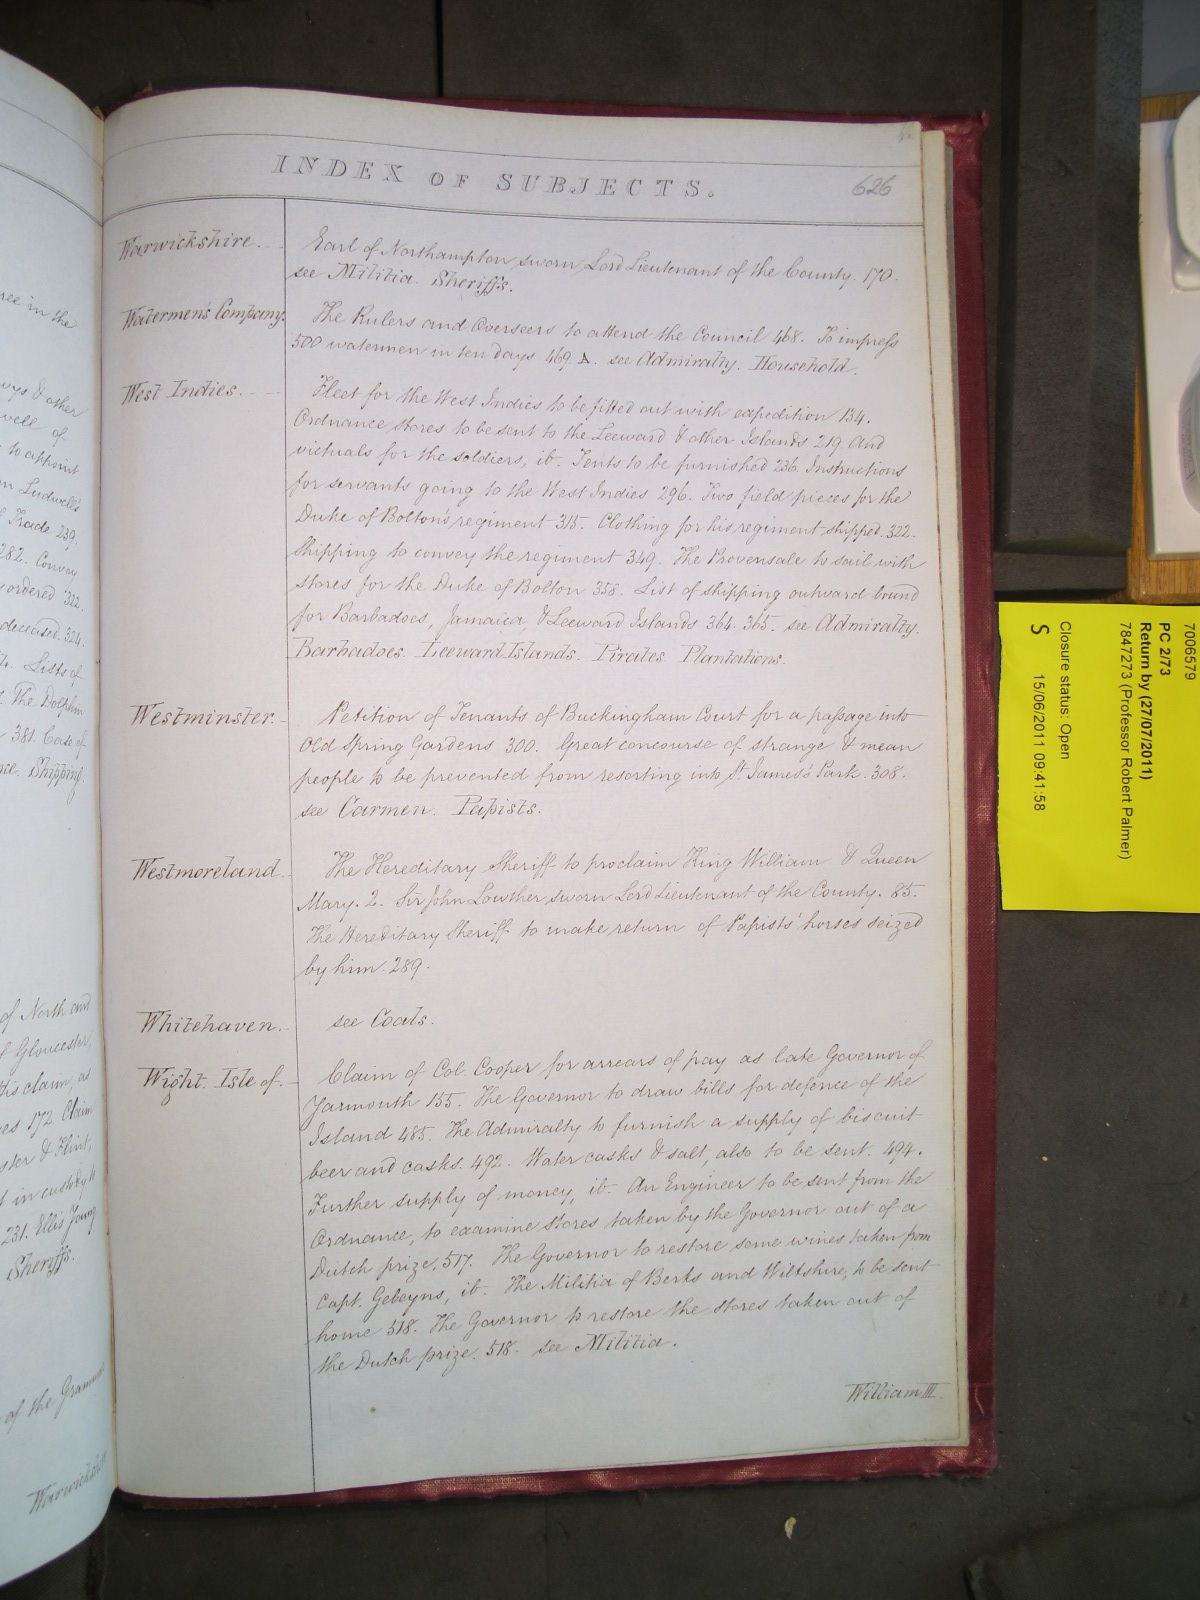 ree in the
ays & other
well of
to appoint
m Ludwell's
Trade 239.
282. Convoy
ordered 322.
deceased. 324.
Lists of
The Dolphin
381. Case of
Shipping
of North and
Gloucester,
his claim as
es 172. Claim
& Flint,
in custody
231. Ellis Young
Sheriffs.
of the
Warwickshire
INDEX OF SUBJECTS.
626
Warwickshire.
Earl of Northampton sworn Lord Lieutenant of the County. 170.
see Militia. Sheriffs.
Watermen's Company.
The Rulers and Overseers to attend the Council 468. To impress
500 watermen in ten days 469 A. see Admiralty. Household.
West Indies.
Fleet for the West Indies to be fitted out with expedition 134.
Ordnance stores to be sent to the Leeward & other Islands 219 And
victuals for the soldiers, ib. Tents to be furnished 236. Instructions
for servants going to the West Indies 296. Two field pieces for the
Duke of Bolton's regiment 315. Clothing for his regiment shipped. 322.
Shipping to convey the regiment 349. The Provensale to sail with
stores for the Duke of Bolton 358. List of shipping outward bound
for Barbadoes, Jamaica, & Leeward Islands 364. 365. see Admiralty.
Barbadoes. Leeward Islands. Pirates. Plantations.
Westminster.
Petition of Tenants of Buckingham Court for a passage into
Old Spring Gardens 300. Great concourse of strange & mean
people to be prevented from resorting into St. James's Park. 308.
see Carmen. Papists.
Westmoreland.
The Hereditary Sheriff to proclaim King William & Queen
Mary. 2. Sir John Lowther sworn Lord Lieutenant of the County. 85.
The Hereditary Sheriff to make return of Papists' horses seized
by him. 289.
Whitehaven.
see Coals.
Wight. Isle of.
Claim of Col. Cooper for arrears of pay as late Governor of
Yarmouth 155. The Governor to draw bills for defence of the
Island 485. The Admiralty to furnish a supply of biscuit
beer and casks. 492. Water casks & salt, also to be sent. 494.
Further supply of money, ib. An Engineer to be sent from the
Ordnance, to examine stores taken by the Governor out of a
Dutch prize, 517. The Governor to restore some wines taken from
Capt. Geboyns, ib. The Militia of Berks and Wiltshire, to be sent
home 518. The Governor to restore the stores taken out of
the Dutch prize. 518. see Militia.
William III.
7006579
PC 2/73
Return by (27/07/2011)
7847273 (Professor Robert Palmer)
Closure status: Open
S 15/06/2011 09:41:58